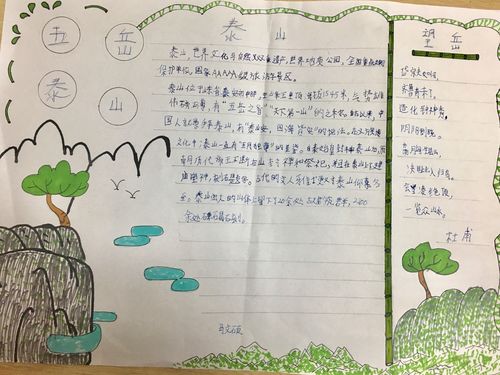 五
岳
泰
山
泰 山
泰山，世界文化与自然双重遗产，世界地质公园，全国重点文物
保护单位，国家AAAAA级旅游景区。
泰山位于山东省泰安市中部，主峰玉皇顶海拔1545米，气势雄
伟磅礴，有“五岳之首”“天下第一山”之称。自古以来，中
国人就崇拜泰山，有“泰山安，四海皆安”的说法，
文化中，泰山一直有“五岳独尊”的美誉。自秦始皇封禅泰山后，
朝历代帝王不断在泰山封禅和祭祀，并且在泰山上下建
庙塑神，刻石题字。古代的文人雅士
泰山宏大的山体上留下了20余处古建筑群，2200
余处碑碣石刻。
望 岳
岱宗夫如何，
齐鲁青未了。
造化钟神秀，
阴阳割昏晓。
荡胸生层云，
决眦入归鸟。
会当凌绝顶，
一览众山小。
杜甫